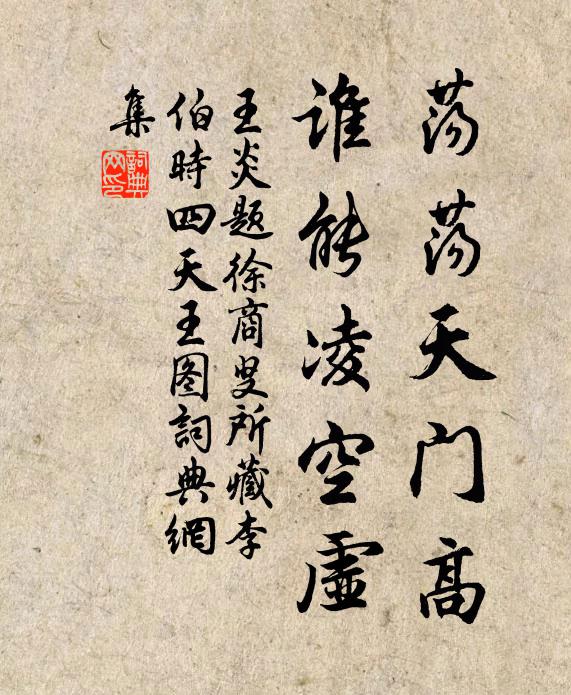 荡荡天门高
谁能凌空虚
王炎题徐商叟所藏李
伯時四天王图詞典網
集
詞典网印